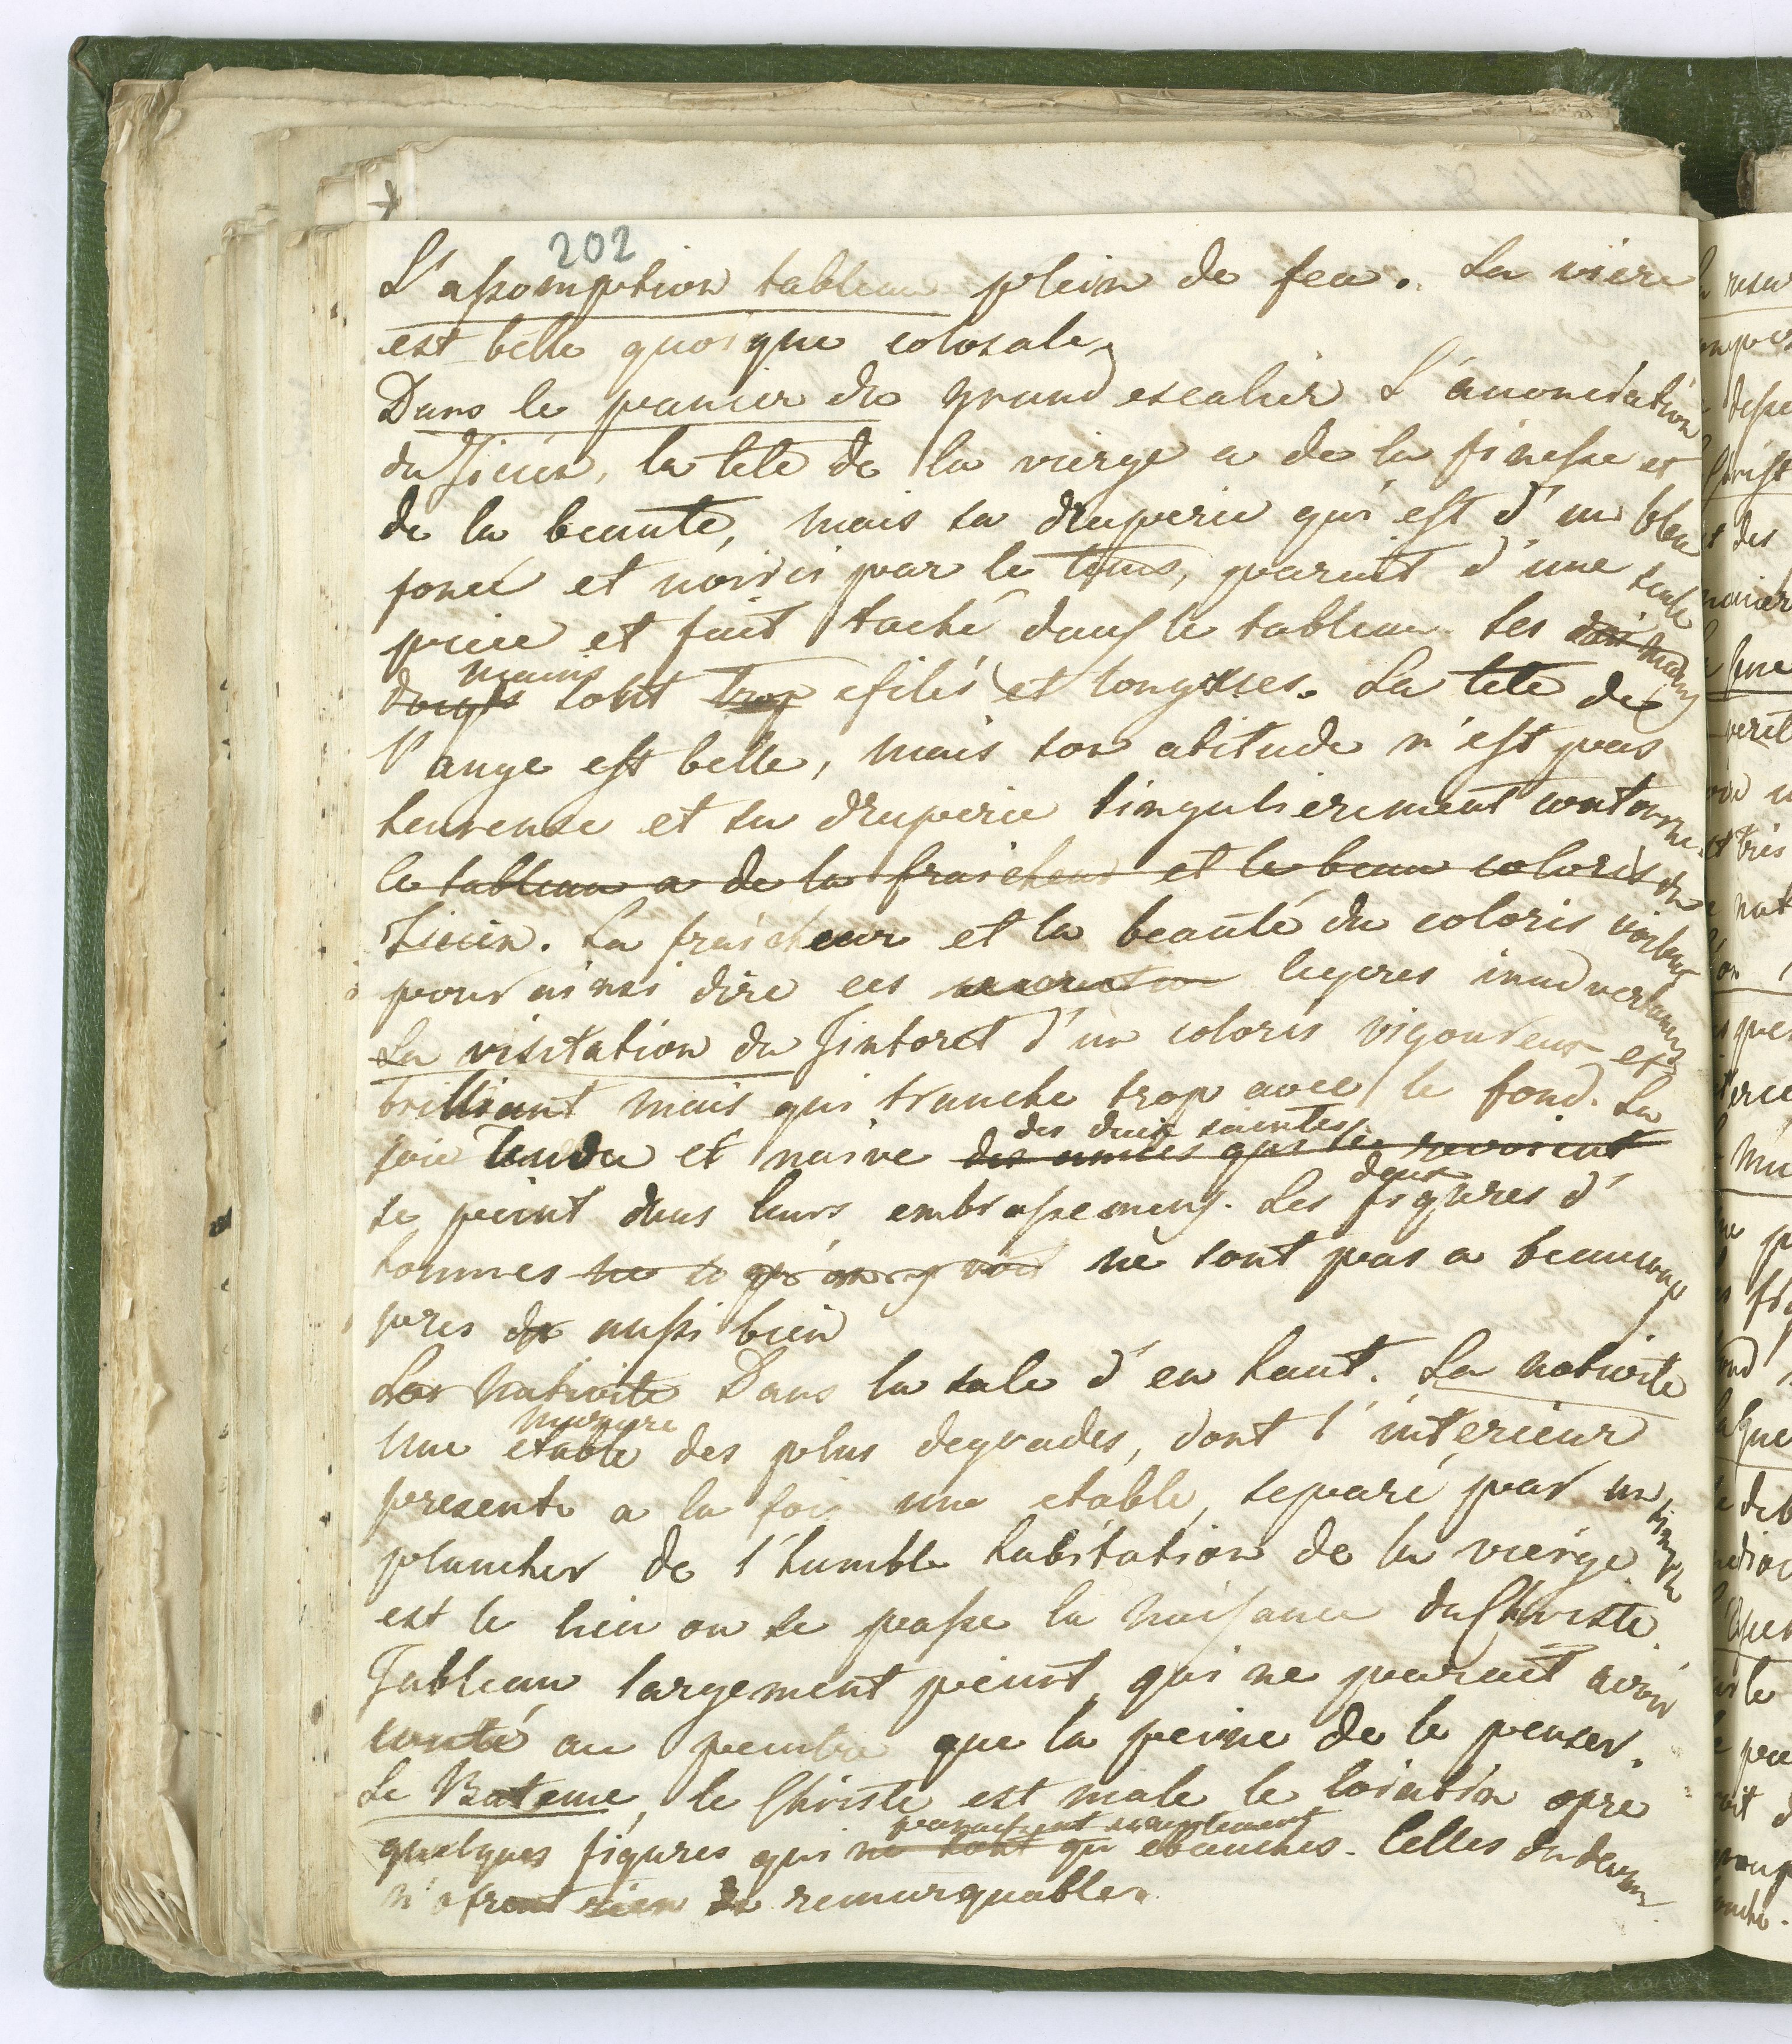 202
L'assomption tableau plein de feu. La viere
est belle quoique colosale.
Dans le panier du grand escalier L'anonciation
du Ticien, la tete de la vierge a de la finesse et
de la beauté, mais sa draperie qui est d'un bleu
foncé et noirci par le tems, parait d'une seule
piece et fait taché dans le tableau. Les mains
mains
doigts sont trop efilés et longues. La tete de
l'ange est belle, mais son atitude n'est pas
heureuse et sa draperie singulierement contourné.
le tableau a de la fraicheur et le beau coloris du
Ticien. La fraicheur et la beauté du coloris voilent
pour ainsi dire ces legeres inadvertances
La visitation du Tintoret d'un coloris vigoureux et
brilliant mais qui tranche trop avec le fond. La
des deux saintes
joie tendre et naive des amies qui se revoient
se peint dans leurs embrassemens. Les figures d'
deux
hommes ne sont pas a beaucoup
pres de aussi bien
La Nativite Dans la sale d'en haut. La nativite
masure
Une etable des plus degrades, dont l'interieur
presente a la fois une etable, separé par un simple
plancher de l'humble habitation de la vierge
est le lieu ou se passe la naissance du Christe.
Tableau largement peint, qui ne parait avoir
couté au peintre que la peine de le penser.
Le Bateme, le Christe est male le lointin ofre
paraissent simplement
quelques figures qui ne sont qu ebauches. Celles du devan
n'ofrent rien de remarquable.